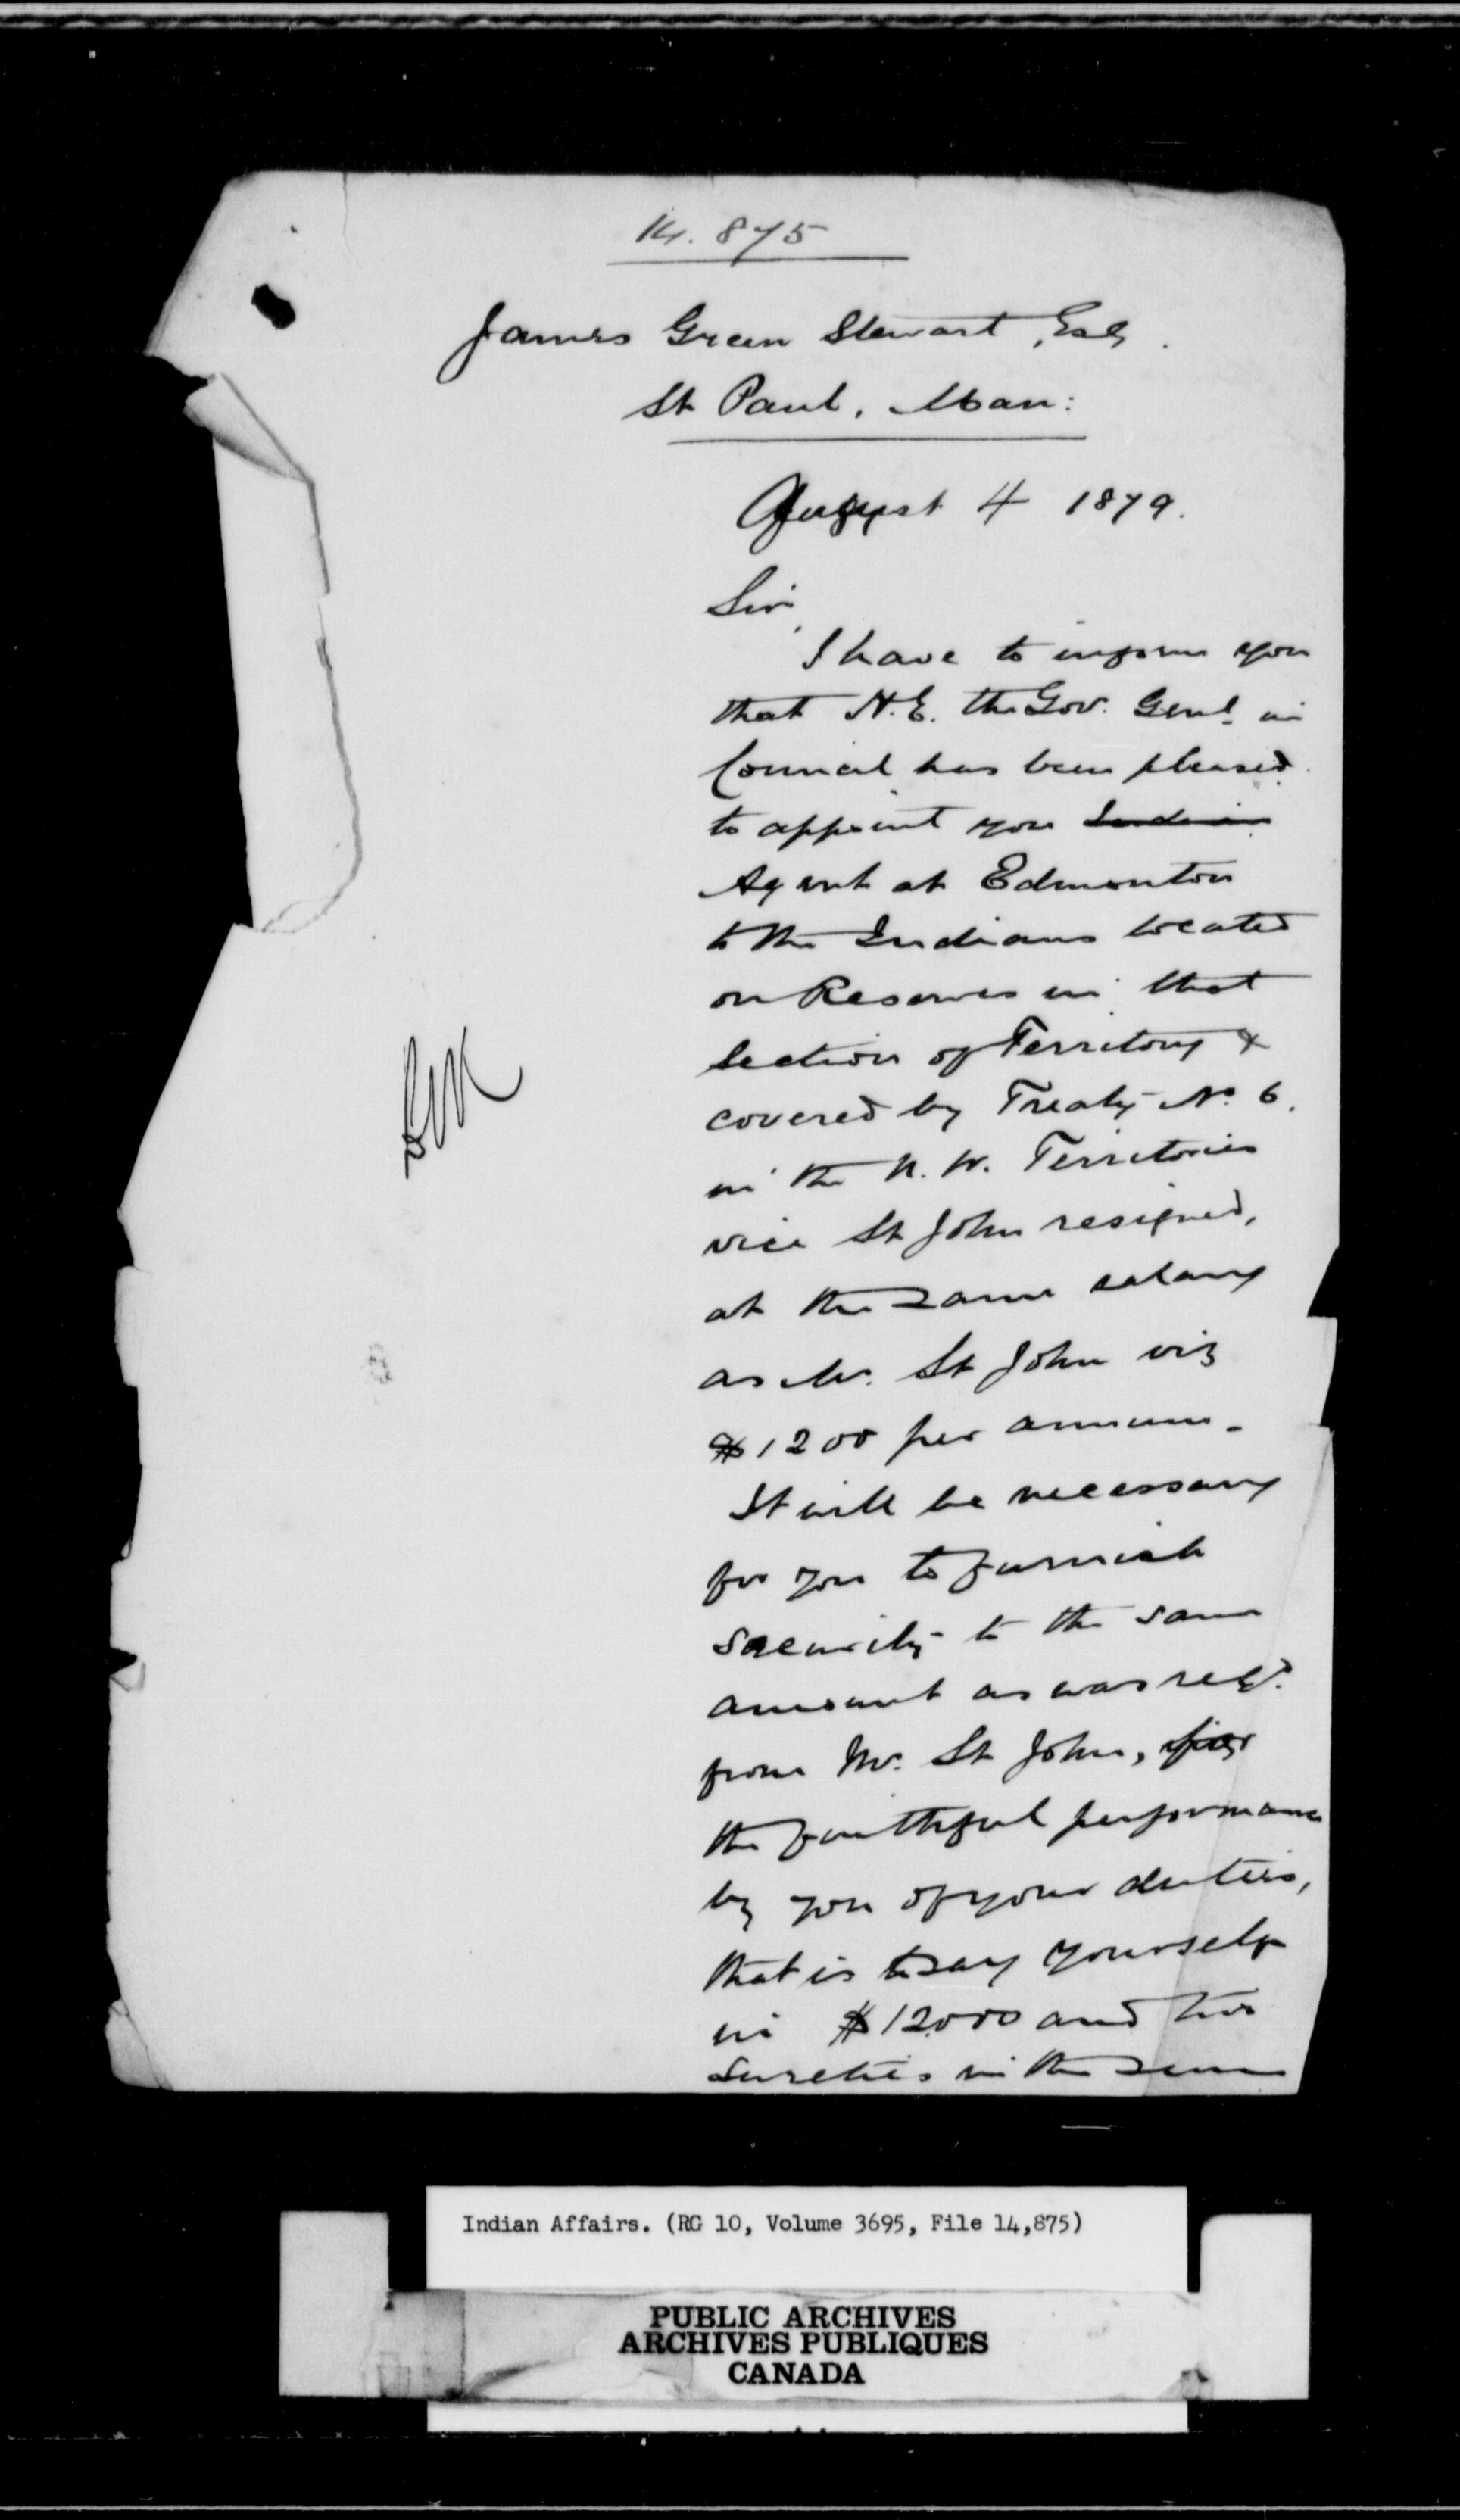 14.875
James Green Stewart, Esq.
St Paul, Man:
August 4 1879.
Sir,
I have to inform you
that H.E. the Gov. Genl. in
Council has been pleased
to appoint you Indian
Agent at Edmonton
to the Indians located
on Reserves in that
section of Territory &
covered by Treaty No. 6.
in the N.W. Territories
vice St John resigned,
at the same salary
as Mr. St John viz
$1200 per annum.
It will be necessary
for you to furnish
security to the same
amount as was reqd.
from Mr. St John, for
the faithful performance
by you of your duties,
that is to say yourself
in $12000 and two
sureties in the sum
Indian Affairs. (RG 10, Volume 3695, File 14,875)
PUBLIC ARCHIVES
ARCHIVES PUBLIQUES
CANADA